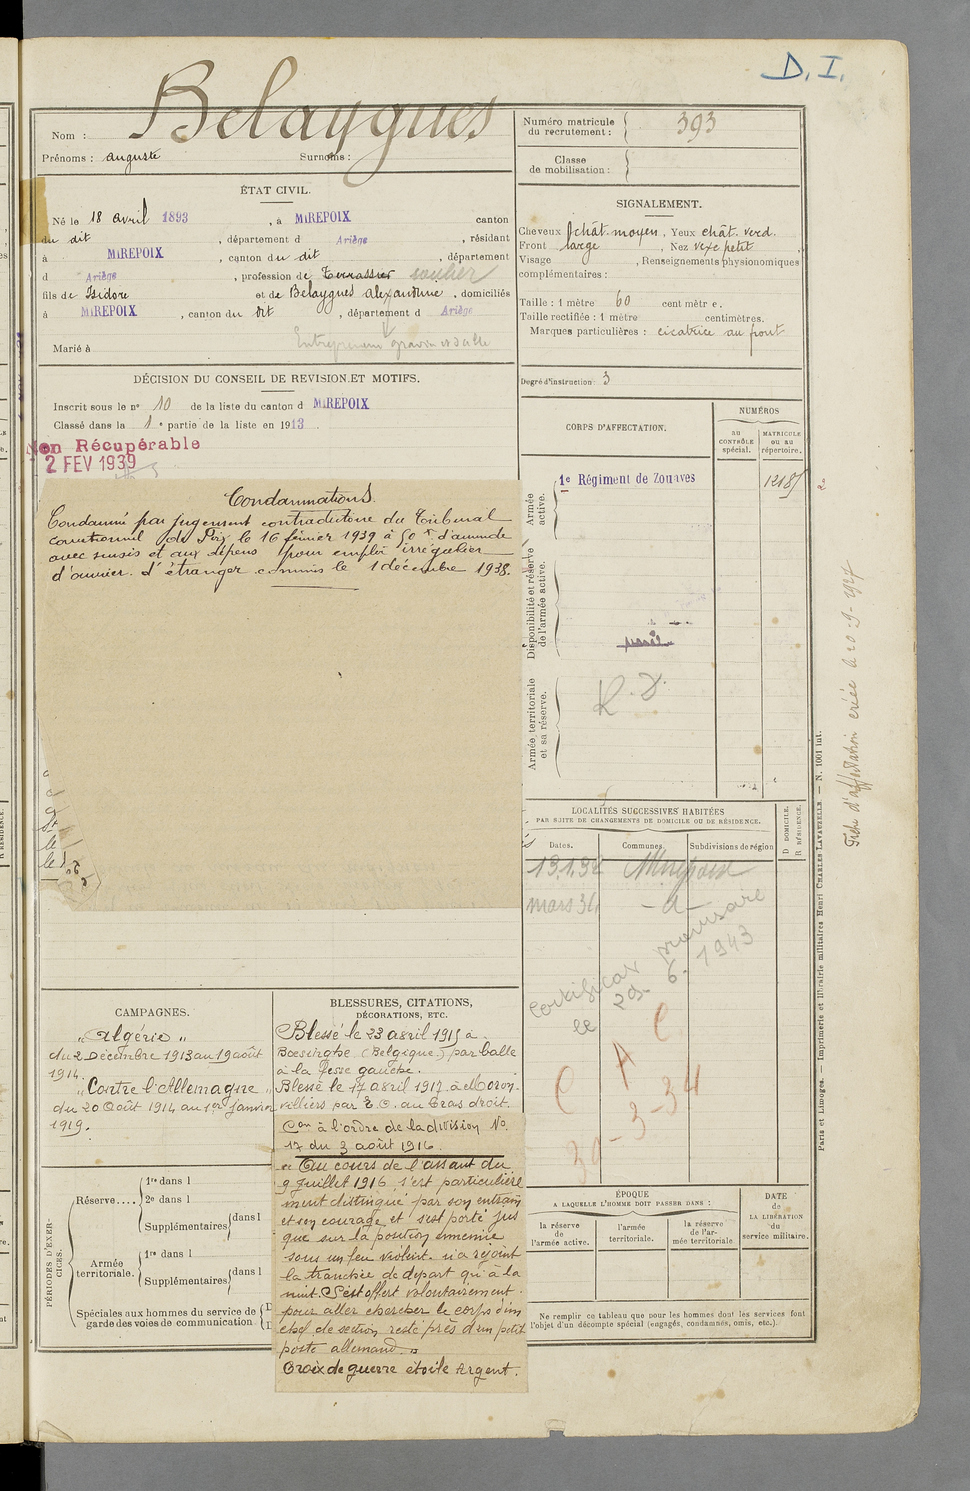 D. I.
Nom : Belaygues
Prénoms : Auguste Surnoms :
Numéro matricule du recrutement : 393
Classe de mobilisation :
ÉTAT CIVIL.
Né le 18 avril 1893, à MIREPOIX canton
du dit, département d Ariège, résidant
à MIREPOIX, canton du dit, département
d Ariège, profession de Terrassier
fils de Isidore et de Belaygues Alexandrine, domiciliés
à MIREPOIX, canton du dit, département d Ariège
Entrepreneur
Marié à
SIGNALEMENT.
Cheveux chât. moyen, Yeux chât. verd.
Front large, Nez vexe petit
Visage , Renseignements physionomiques
complémentaires :
Taille : 1 mètre 60 centimètres.
Taille rectifiée : 1 mètre centimètres.
Marques particulières : cicatrice au front
Degré d'instruction : 3
DÉCISION DU CONSEIL DE REVISION ET MOTIFS.
Inscrit sous le n° 10 de la liste du canton d MIREPOIX
Classé dans la 1e partie de la liste en 1913.
Non Récupérable
2 FEV 1939
Condamnations.
Condamné par jugement contradictoire du Tribunal
correctionnel de Foix le 16 février 1939 à 50 f d'amende
avec sursis et aux dépens pour emploi irrégulier
d'ouvrier d'étranger commis le 1 décembre 1938.
CORPS D'AFFECTATION.
NUMÉROS
au CONTRÔLE spécial.
MATRICULE ou au répertoire.
Armée active.
1e Régiment de Zouaves
12185
Disponibilité et réserve de l'armée active.
Armée territoriale et sa réserve.
R. D.
Fiche d'affectation créée le 20-9-1927
LOCALITÉS SUCCESSIVES HABITÉES
PAR SUITE DE CHANGEMENTS DE DOMICILE OU DE RÉSIDENCE.
Dates.
Communes.
Subdivisions de région
D DOMICILE.
R RÉSIDENCE.
13.1.32 Mirepoix
mars 36 -d-
le 29. 6. 1943
C A C
30-3-34
CAMPAGNES.
"Algérie"
du 2 Décembre 1913 au 19 août
1914.
"Contre l'Allemagne"
du 20 Août 1914 au 1er Janvier
1919.
BLESSURES, CITATIONS,
DÉCORATIONS, ETC.
Blessé le 23 avril 1915 à
Boesinghe (Belgique) par balle
à la fesse gauche.
Blessé le 17 avril 1917 à Moron-
villiers par E.O. au bras droit.
Con à l'ordre de la division No
17 du 3 août 1916
"Au cours de l'assaut du
9 Juillet 1916 s'est particulière
ment distingué par son entrain
et son courage et s'est porté jus
que sur la position ennemie
sous un feu violent. N'a rejoint
la tranchée de départ qu'à la
nuit. S'est offert volontairement
pour aller chercher le corps d'un
chef de section resté près d'un petit
poste allemand."
Croix de guerre étoile Argent.
PÉRIODES D'EXERCICES.
Réserve....
1re dans l
2e dans l
Supplémentaires dans l
Armée territoriale.
1re dans l
Supplémentaires dans l
Spéciales aux hommes du service de
garde des voies de communication
ÉPOQUE
A LAQUELLE L'HOMME DOIT PASSER DANS :
la réserve de l'armée active.
l'armée territoriale.
la réserve de l'armée territoriale
DATE de LA LIBÉRATION du service militaire.
Ne remplir ce tableau que pour les hommes dont les services font
l'objet d'un décompte spécial (engagés, condamnés, omis, etc.).
Paris et Limoges. — Imprimerie et librairie militaires Henri CHARLES-LAVAUZELLE. — N. 1001 int.